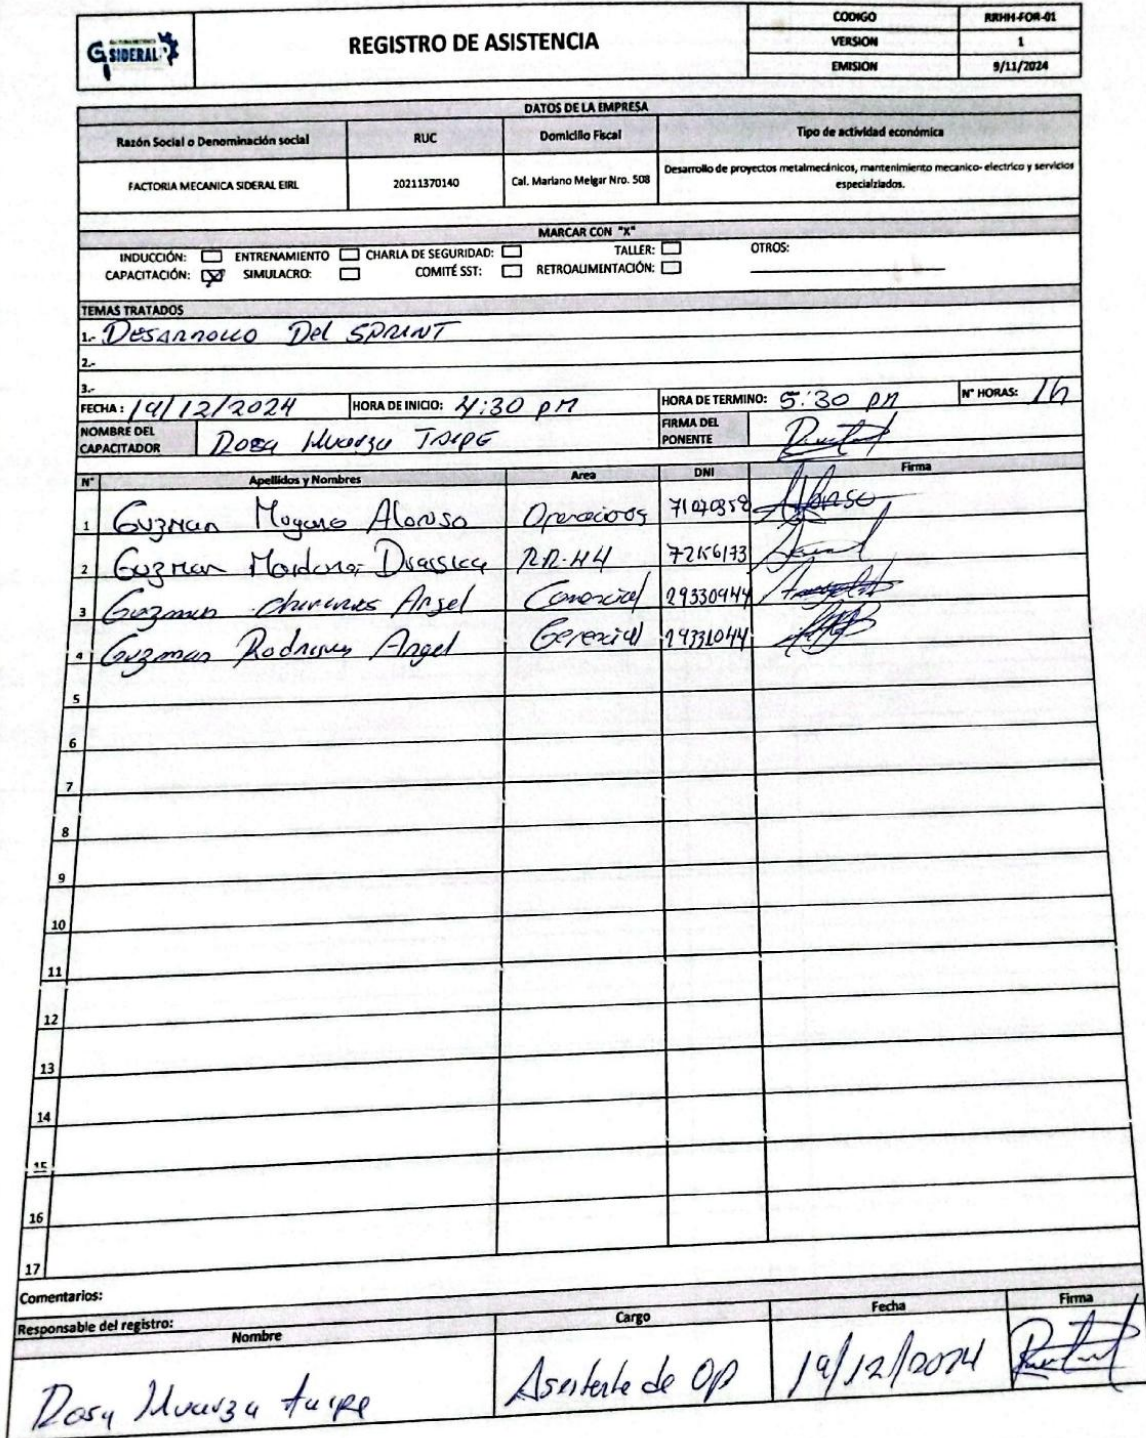 G SIDERAL
REGISTRO DE ASISTENCIA
CODIGO RRHH-FOR-01
VERSION 1
EMISION 9/11/2024
DATOS DE LA EMPRESA
Razón Social o Denominación social RUC Domicilio Fiscal Tipo de actividad económica
FACTORIA MECANICA SIDERAL EIRL 20211370140 Cal. Mariano Melgar Nro. 508 Desarrollo de proyectos metalmecánicos, mantenimiento mecanico- electrico y servicios
especialziados.
MARCAR CON "X"
INDUCCIÓN: ENTRENAMIENTO CHARLA DE SEGURIDAD: TALLER: OTROS:
CAPACITACIÓN: X SIMULACRO: COMITÉ SST: RETROALIMENTACIÓN:
TEMAS TRATADOS
1.- Desarrollo Del SPRINT
2.-
3.-
FECHA: 19/12/2024 HORA DE INICIO: 4:30 pm HORA DE TERMINO: 5:30 pm N° HORAS: 1h
NOMBRE DEL
CAPACITADOR Rosa Huarza Taipe
FIRMA DEL
PONENTE
N° Apellidos y Nombres Area DNI Firma
1 Guzman Alonso Operaciones Alonso
2 Guzman RR-HH
3 Guzman Angel Comercial 29330944
4 Guzman Angel Gerencial
5
6
7
8
9
10
11
12
13
14
15
16
17
Comentarios:
Responsable del registro:
Nombre Cargo Fecha Firma
Rosa Huarza taipe Asistente de Op 19/12/2024